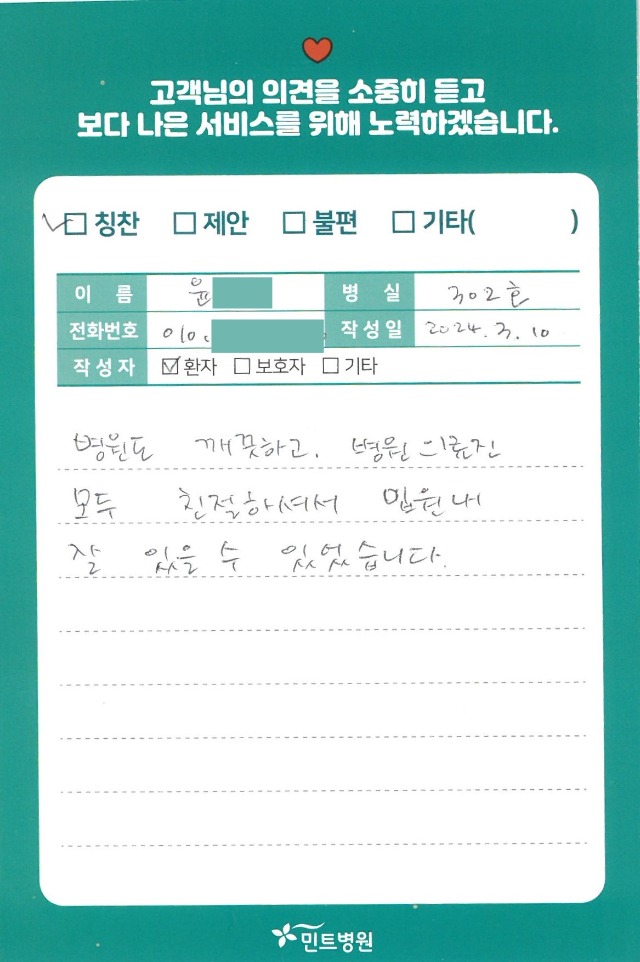 고객님의 의견을 소중히 듣고
보다 나은 서비스를 위해 노력하겠습니다.
칭찬 제안 불편 기타( )
이 름 윤 병 실 302호
전화번호 010. 작성일 2024. 3. 10
작성자 환자 보호자 기타
병원도 깨끗하고, 병원 의료진
모두 친절하셔서 입원내
잘 있을 수 있었습니다.
민트병원